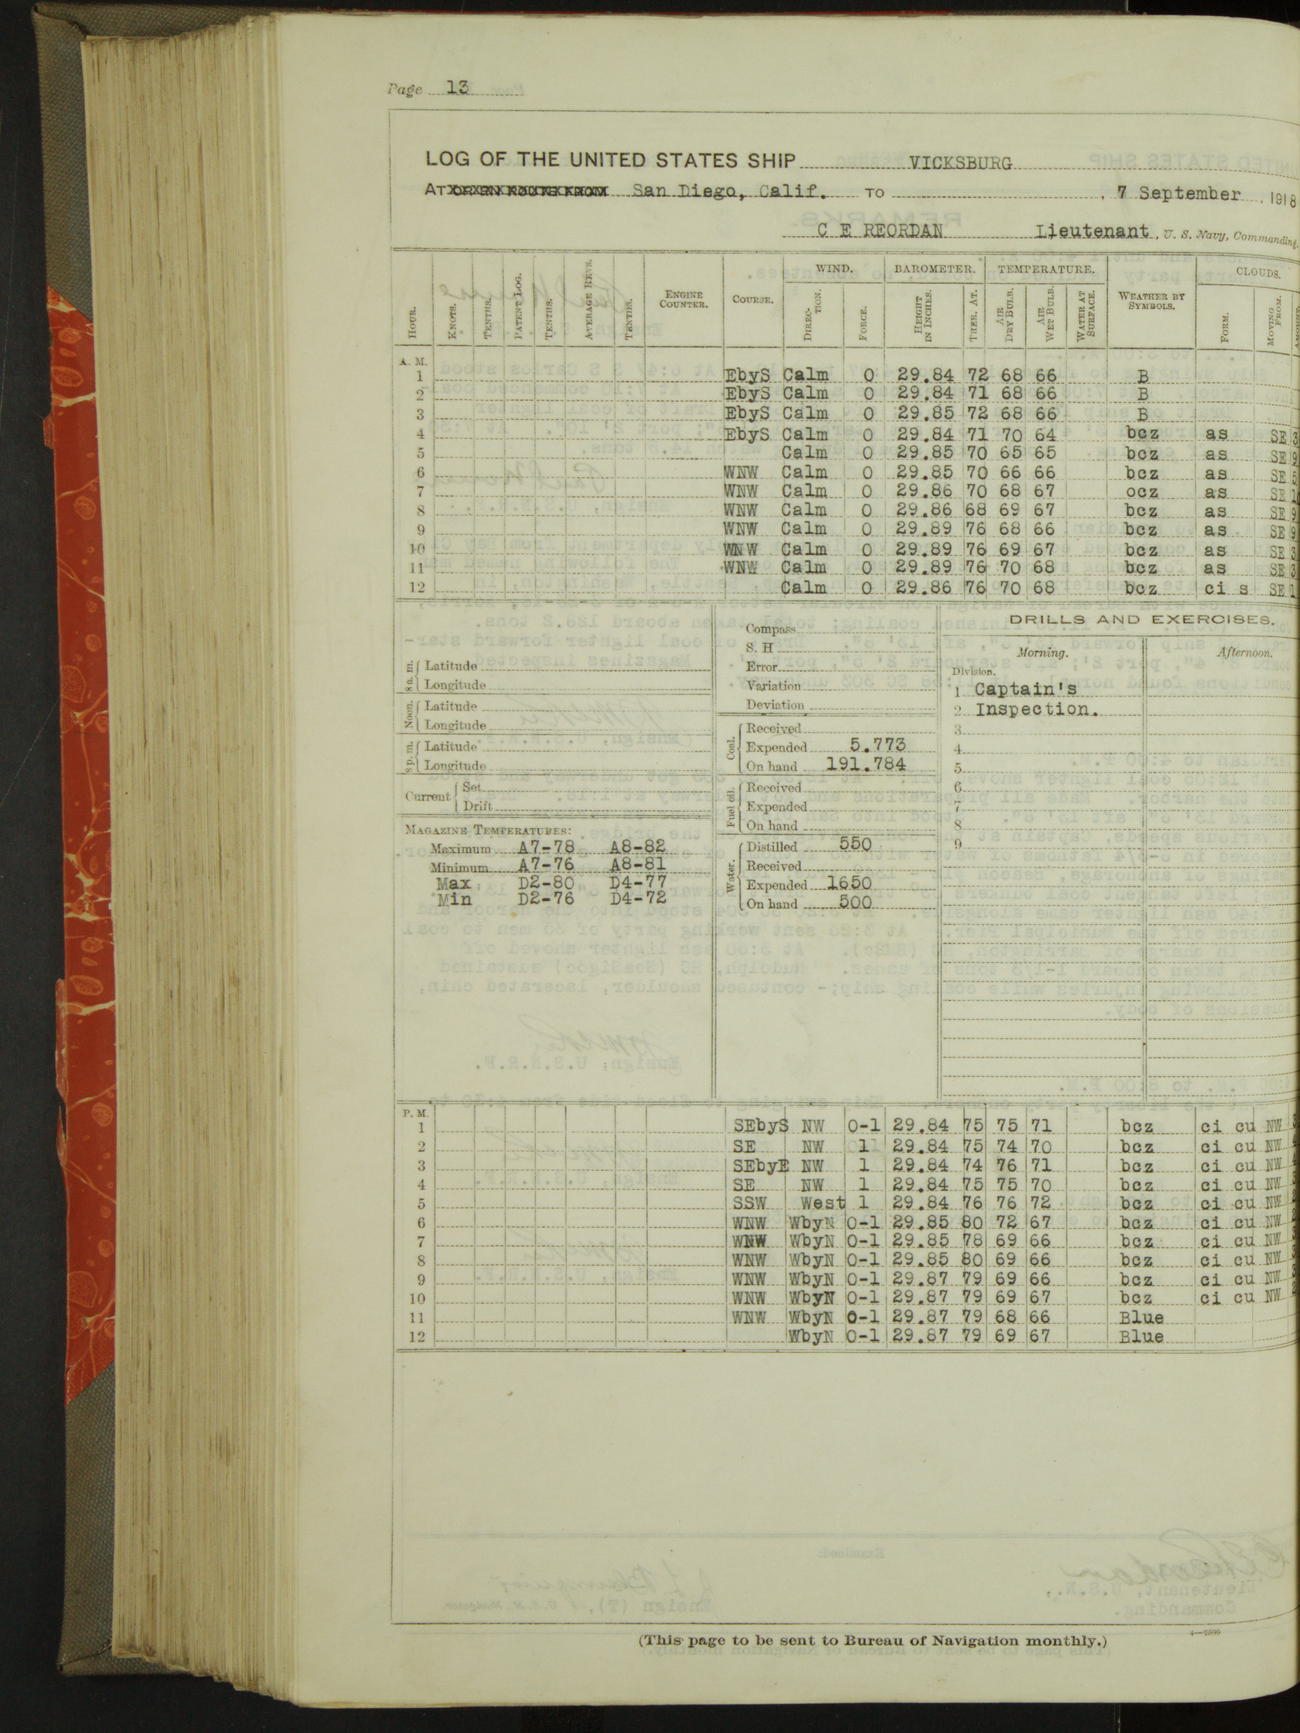 Page 13
LOG OF THE UNITED STATES SHIP VICKSBURG
AT San Diego, Calif. TO , 7 September , 1918
C E REORDAN Lieutenant , U. S. Navy, Commanding.
WIND. BAROMETER. TEMPERATURE. CLOUDS.
HOUR. KNOTS. TENTHS. PATENT LOG. TENTHS. AVERAGE REVS. TENTHS. ENGINE COUNTER. COURSE. DIREC-TION. FORCE. HEIGHT IN INCHES. THER. AT. AIR DRY BULB. AIR WET BULB. WATER AT SURFACE. WEATHER BY SYMBOLS. FORM. MOVING FROM.
A. M.
1 EbyS Calm 0 29.84 72 68 66 B
2 EbyS Calm 0 29.84 71 68 66 B
3 EbyS Calm 0 29.85 72 68 66 B
4 EbyS Calm 0 29.84 71 70 64 bcz as SE 3
5 Calm 0 29.85 70 65 65 bcz as SE 9
6 WNW Calm 0 29.85 70 66 66 bcz as SE
7 WNW Calm 0 29.86 70 68 67 ocz as SE
8 WNW Calm 0 29.86 68 69 67 bcz as SE 9
9 WNW Calm 0 29.89 76 68 66 bcz as SE 9
10 WNW Calm 0 29.89 76 69 67 bcz as SE 3
11 WNW Calm 0 29.89 76 70 68 bcz as SE 3
12 Calm 0 29.86 76 70 68 bcz ci s SE 1
8 a. m. Latitude
Longitude
Noon. Latitude
Longitude
8 p. m. Latitude
Longitude
Current Set
Drift
MAGAZINE TEMPERATURES:
Maximum A7-78 A8-82
Minimum A7-76 A8-81
Max D2-80 D4-77
Min D2-76 D4-72
Compass
S. H
Error
Variation
Deviation
Coal. Received
Expended 5.773
On hand 191.784
Fuel oil. Received
Expended
On hand
Water. Distilled 550
Received
Expended 1650
On hand 500
DRILLS AND EXERCISES.
Morning. Afternoon.
Division.
1 Captain's
2 Inspection.
3
4
5
6
7
8
9
P. M.
1 SEbyS NW 0-1 29.84 75 75 71 bcz ci cu NW
2 SE NW 1 29.84 75 74 70 bcz ci cu NW
3 SEbyE NW 1 29.84 74 76 71 bcz ci cu NW
4 SE NW 1 29.84 75 75 70 bcz ci cu NW
5 SSW West 1 29.84 76 76 72 bcz ci cu NW
6 WNW WbyN 0-1 29.85 80 72 67 bcz ci cu NW
7 WNW WbyN 0-1 29.85 78 69 66 bcz ci cu NW
8 WNW WbyN 0-1 29.85 80 69 66 bcz ci cu NW
9 WNW WbyN 0-1 29.87 79 69 66 bcz ci cu NW
10 WNW WbyN 0-1 29.87 79 69 67 bcz ci cu NW
11 WNW WbyN 0-1 29.87 79 68 66 Blue
12 WbyN 0-1 29.87 79 69 67 Blue
(This page to be sent to Bureau of Navigation monthly.)